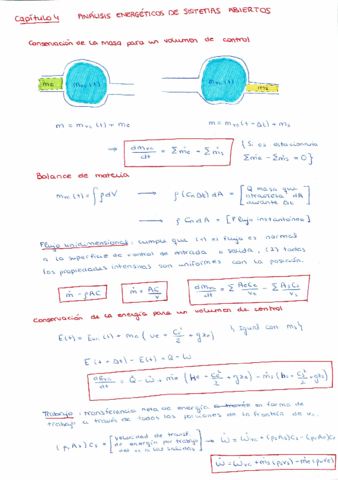 Capítulo 4 ANÁLISIS ENERGÉTICOS DE SISTEMAS ABIERTOS
Conservación de la masa para un volumen de control
me mvc(t) mvc(t) ms
m = mvc(t) + me m = mvc(t+Δt) + ms
→ dmvc/dt = Σṁe - Σṁs { Si es estacionario Σṁe - Σṁs = 0 }
Balance de materia
mvc(t) = ∫ρdV → ρ(CnΔt)dA = [ Q masa que atraviesa dA durante Δt ]
→ ρCndA = [ Flujo instantáneo ]
Flujo unidimensional: cumple que (1) el flujo es normal
a la superficie de control de entrada o salida, (2) todas
las propiedades intensivas son uniformes con la posición.
ṁ = ρAC ṁ = AC/v dmvc/dt = Σ AeCe/ve - Σ AsCs/vs
Conservación de la energía para un volumen de control
E(t) = Evc(t) + me (ue + Ce²/2 + gze) { Igual con ms }
E(t+Δt) - E(t) = Q - W
dEvc/dt = Q̇ - Ẇ + ṁe (he + Ce²/2 + gze) - ṁs (hs + Cs²/2 + gzs)
Trabajo: transferencia neta de energía en forma de
trabajo a través de todas las porciones de la frontera de vc.
(ps As) Cs = [ velocidad de transf. de energía por trabajo del vc a las salidas ] → Ẇ = Ẇvc + (ps As)Cs - (pe Ae)Ce
Ẇ = Ẇvc + ṁs(ps vs) - ṁe(pe ve)